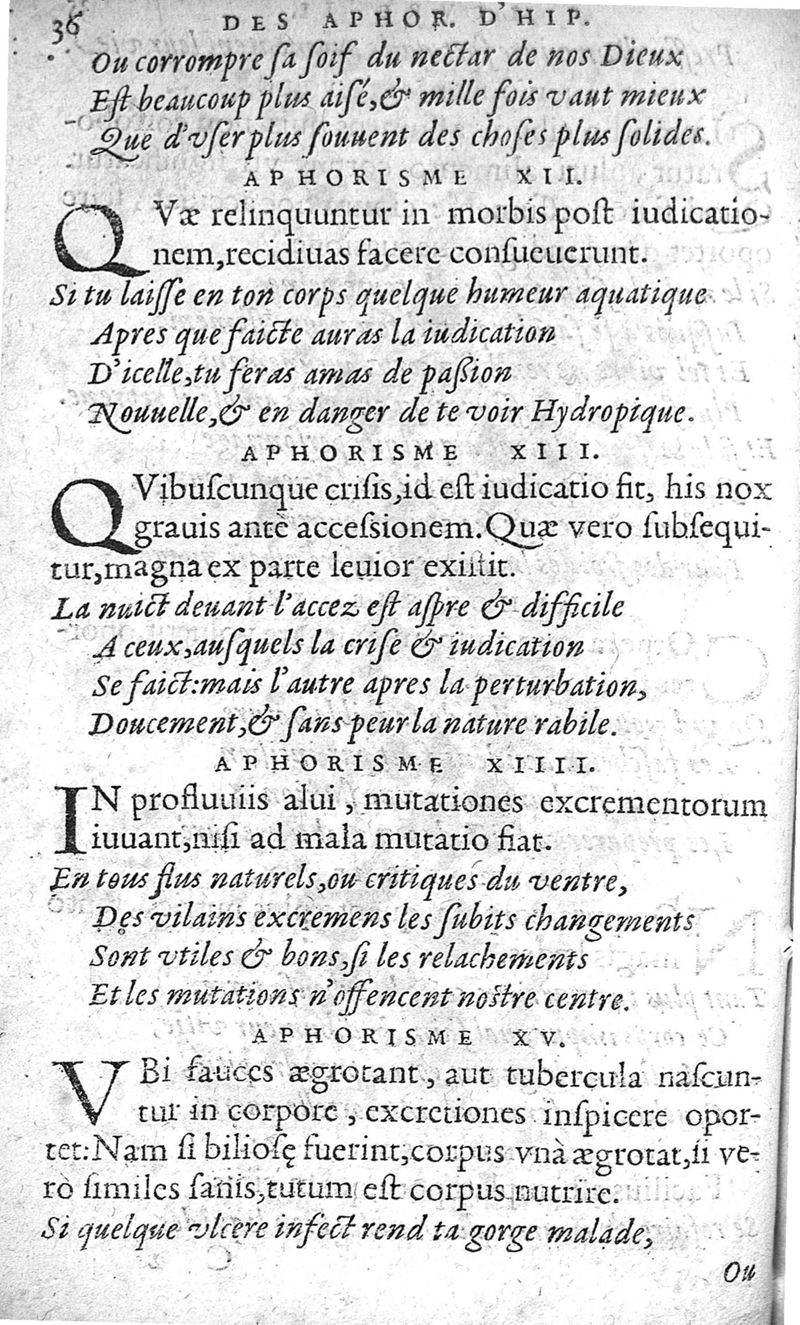 36 DES APHOR. D'HIP.
Ou corrompre ſa ſoif du nectar de nos Dieux
Eſt beaucoup plus aiſé,& mille fois vaut mieux
Que d'vſer plus ſouuent des choſes plus ſolides.
APHORISME XII.
QVæ relinquuntur in morbis poſt iudicatio-
nem,recidiuas facere conſueuerunt.
Si tu laiſſe en ton corps quelque humeur aquatique
Apres que faicte auras la iudication
D'icelle,tu feras amas de paſsion
Nouuelle,& en danger de te voir Hydropique.
APHORISME XIII.
QVibuſcunque criſis,id eſt iudicatio fit, his nox
grauis ante acceſsionem. Quæ vero ſubſequi-
tur,magna ex parte leuior exiſtit.
La nuict deuant l'accez eſt aſpre & difficile
A ceux,auſquels la criſe & iudication
Se faict:mais l'autre apres la perturbation,
Doucement,& ſans peur la nature rabile.
APHORISME XIIII.
IN profluuiis alui, mutationes excrementorum
iuuant,niſi ad mala mutatio fiat.
En tous flus naturels,ou critiques du ventre,
Des vilains excremens les ſubits changements
Sont vtiles & bons,ſi les relachements
Et les mutations n'offencent noſtre centre.
APHORISME XV.
VBi fauces ægrotant, aut tubercula naſcun-
tur in corpore, excretiones inſpicere opor-
tet:Nam ſi bilioſę fuerint,corpus vnà ægrotat,ſi ve-
rò ſimiles ſanis,tutum eſt corpus nutrire.
Si quelque vlcere infect rend ta gorge malade,
Ou